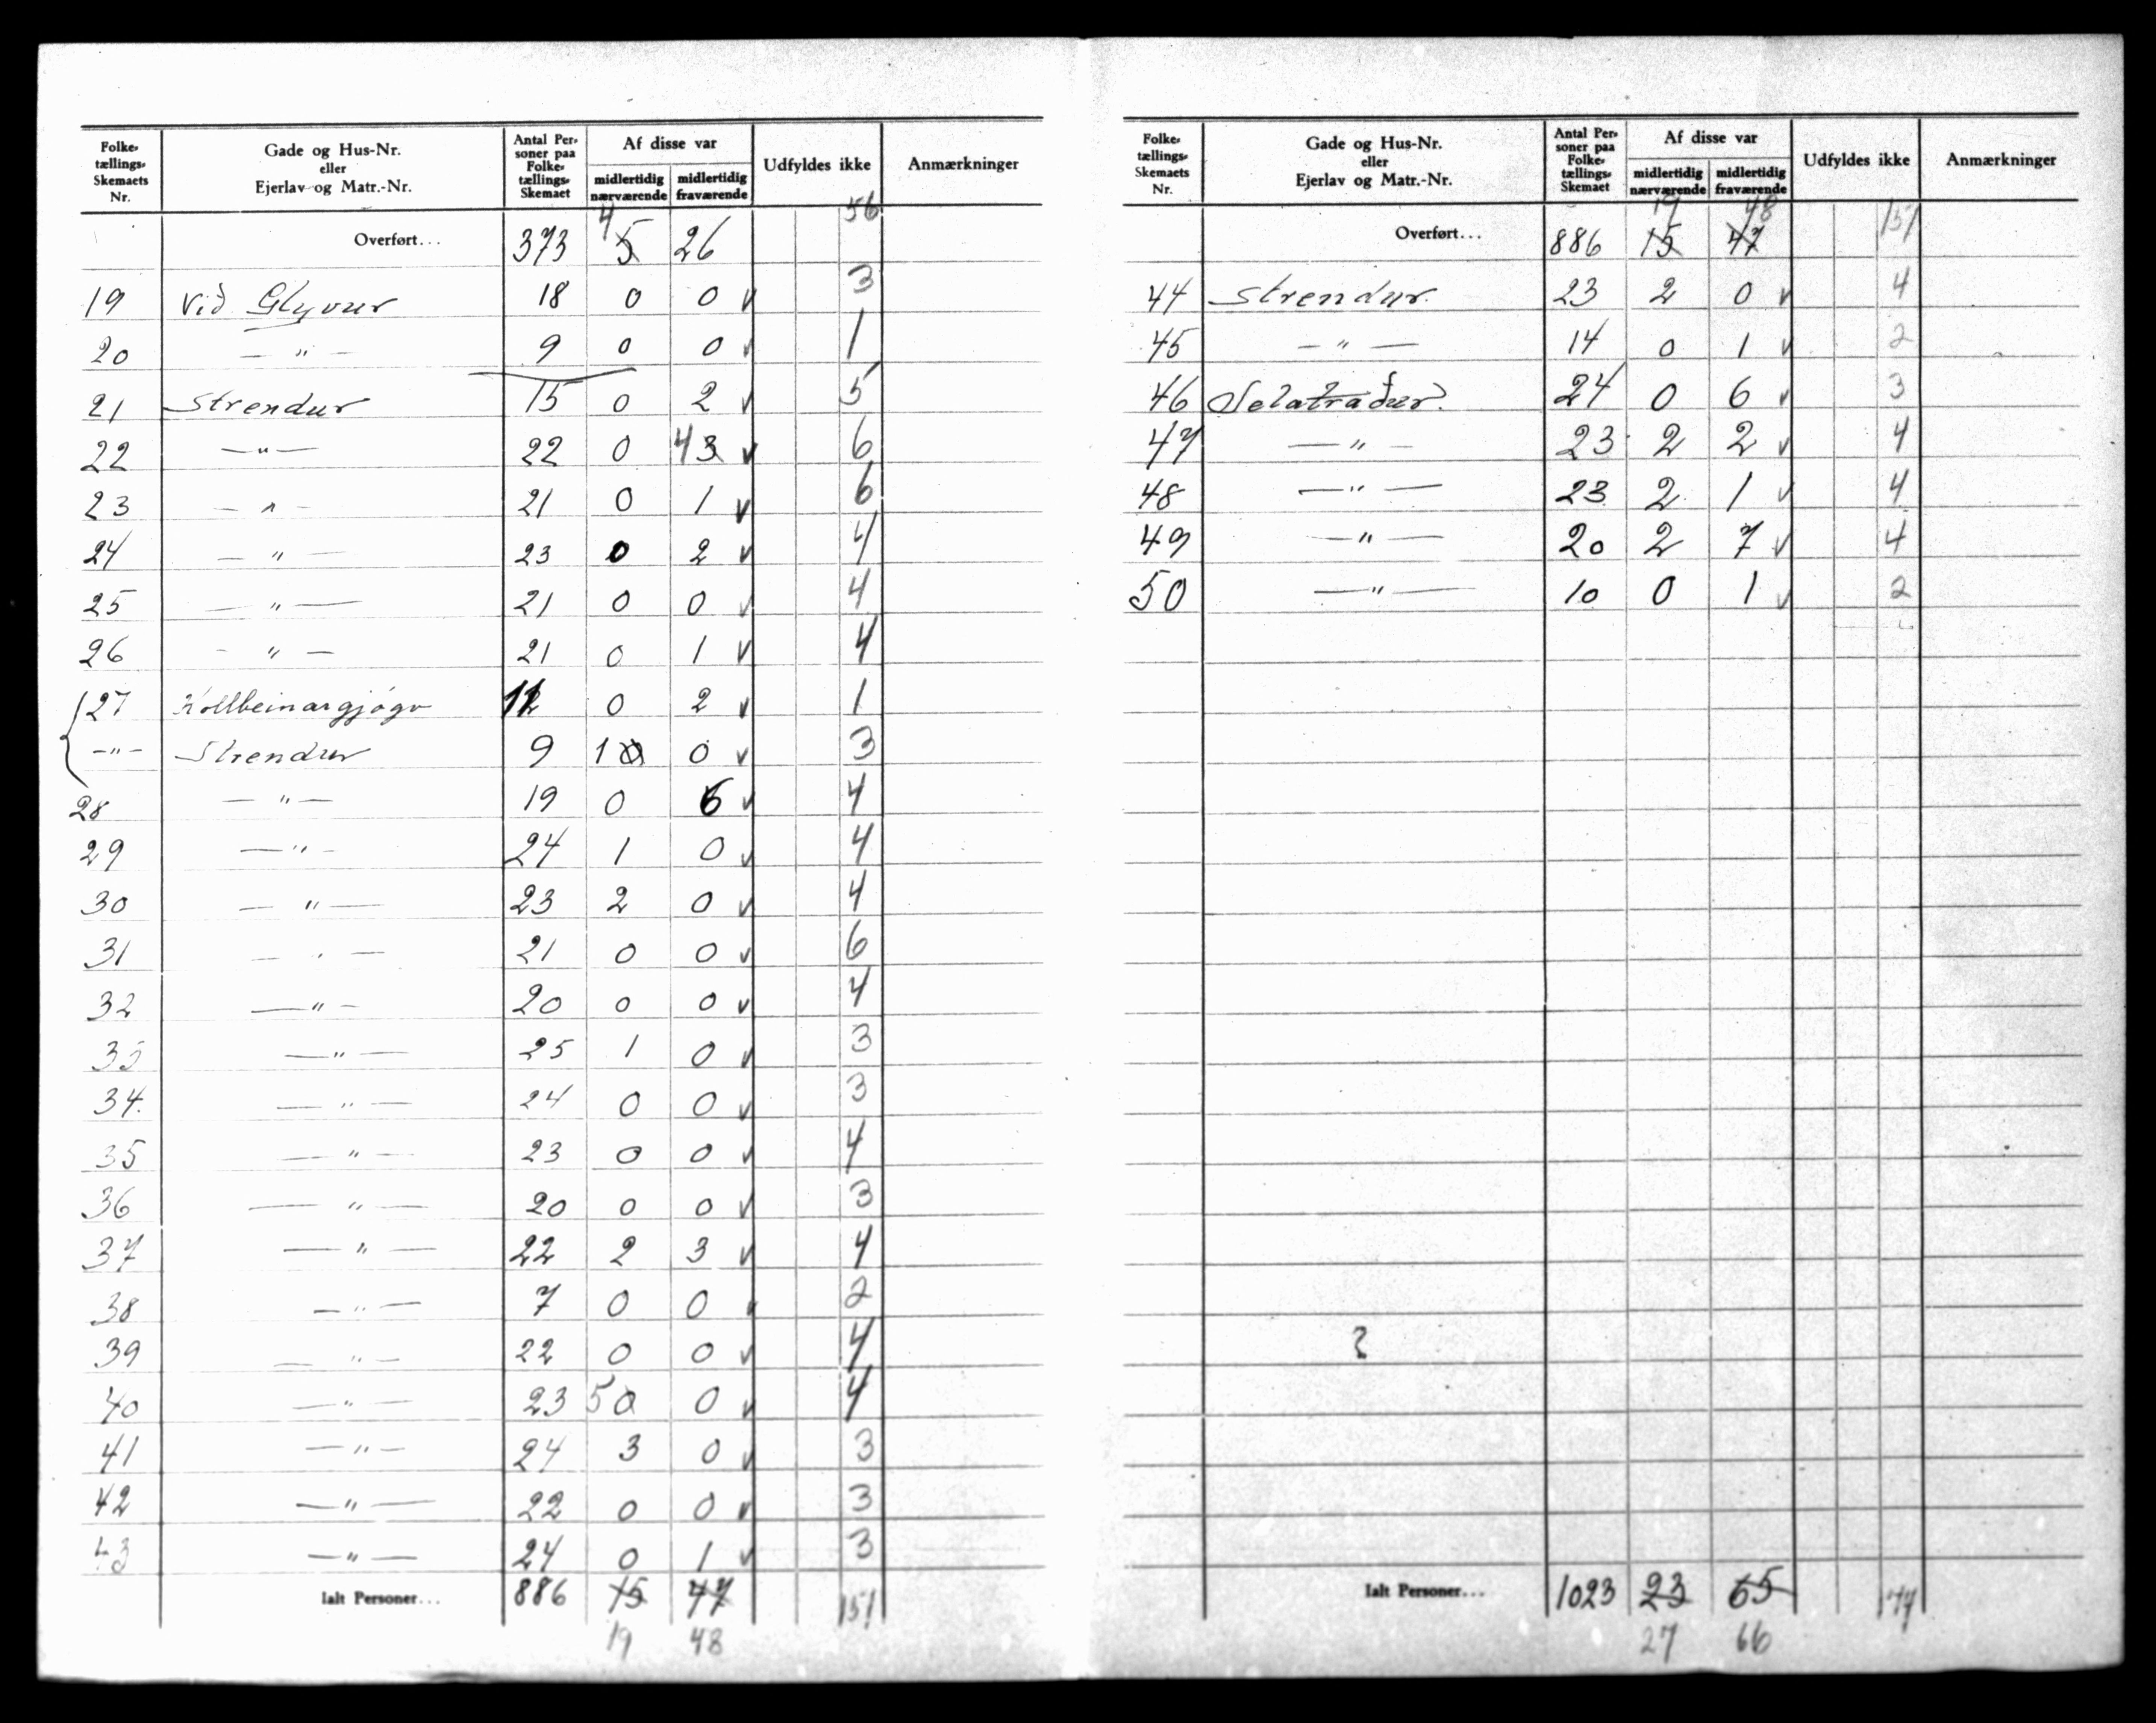 Folke-tællings-Skemaets Nr. | Gade og Hus-Nr. eller Ejerlav og Matr.-Nr. | Antal Personer paa Folke-tællings-Skemaet | Af disse var midlertidig nærværende | midlertidig fraværende | Udfyldes ikke | Anmærkninger
Overført... 373 4 5 26 56
19 Við Glyvur 18 0 0 v 3
20 — " — 9 0 0 v 1
21 Strendur 15 0 2 v 5
22 — " — 22 0 4 3 v 6
23 — " — 21 0 1 v 6
24 — " — 23 0 2 v 4
25 — " — 21 0 0 v 4
26 — " — 21 0 1 v 4
27 Kolbeinargjógv 0 2 v 1
— " — Strendur 9 1 0 0 v 3
28 — " — 19 0 6 v 4
29 — " — 24 1 0 v 4
30 — " — 23 2 0 v 4
31 — " — 21 0 0 v 6
32 — " — 20 0 0 v 4
33 — " — 25 1 0 v 3
34. — " — 24 0 0 v 3
35 — " — 23 0 0 v 4
36 — " — 20 0 0 v 3
37 — " — 22 2 3 v 4
38 — " — 7 0 0 v 2
39 — " — 22 0 0 v 4
40 — " — 23 5 0 0 v 4
41 — " — 24 3 0 v 3
42 — " — 22 0 0 v 3
43 — " — 24 0 1 v 3
Ialt Personer... 886 15 47 151
19 48
Folke-tællings-Skemaets Nr. | Gade og Hus-Nr. eller Ejerlav og Matr.-Nr. | Antal Personer paa Folke-tællings-Skemaet | Af disse var midlertidig nærværende | midlertidig fraværende | Udfyldes ikke | Anmærkninger
19 48
Overført... 886 15 47 151
44 Strendur. 23 2 0 v 4
45 — " — 14 0 1 v 2
46 Selatraður. 24 0 6 v 3
47 — " — 23 2 2 v 4
48 — " — 23 2 1 v 4
49 — " — 20 2 7 v 4
50 — " — 10 0 1 v 2
?
Ialt Personer... 1023 23 65
27 66